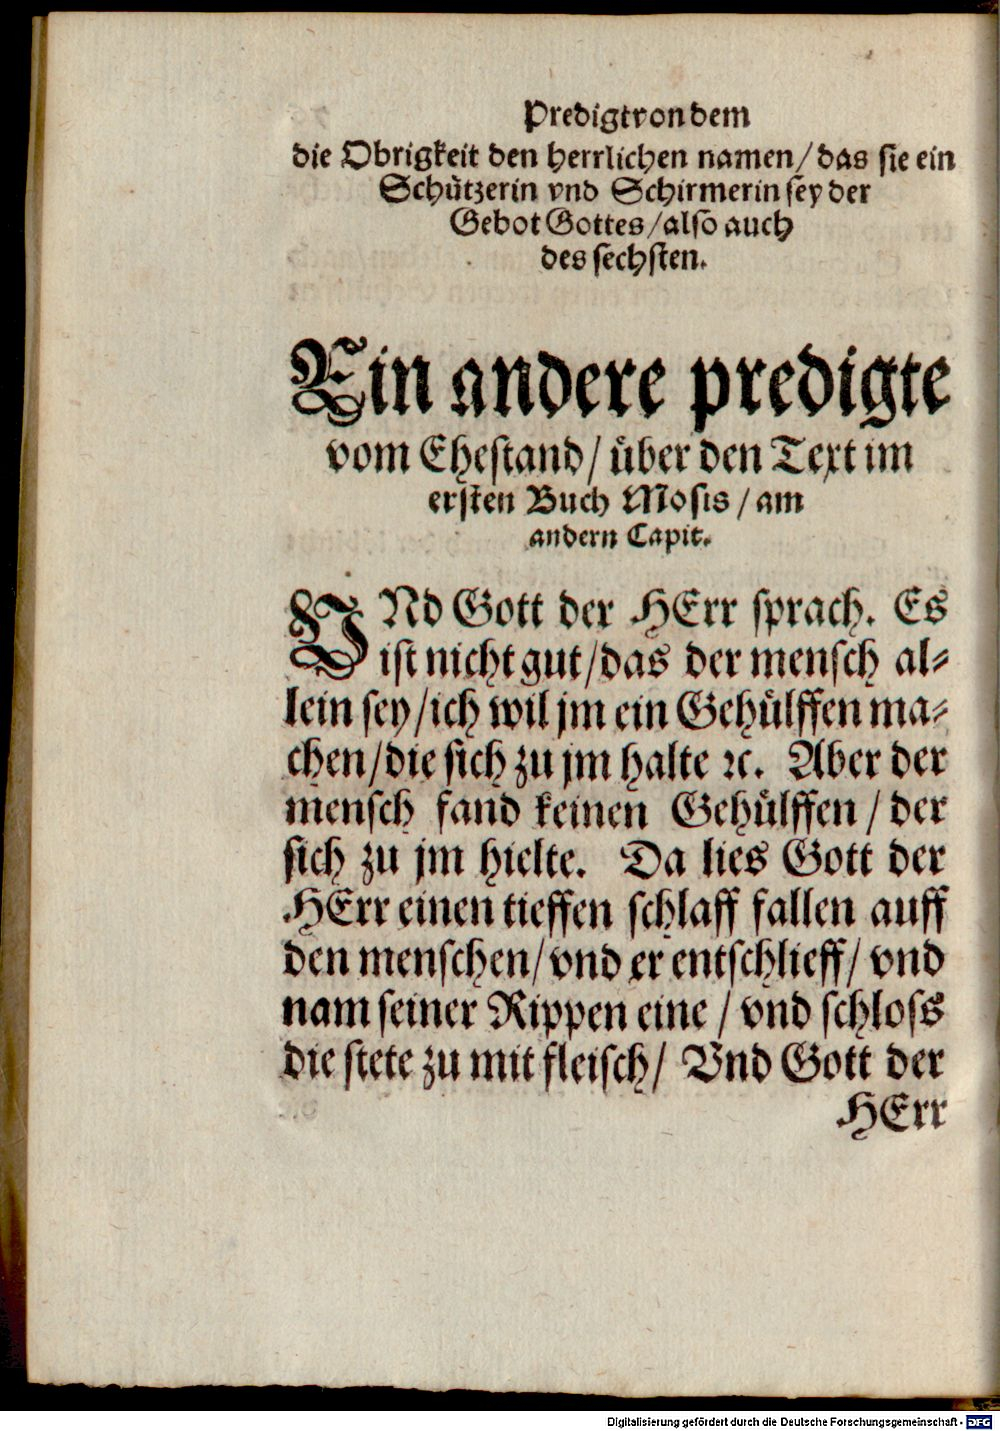 Predigt von dem
die Obrigkeit den herrlichen namen/ das sie ein
Schützerin vnd Schirmerin sey der
Gebot Gottes/ also auch
des sechsten.
Ein andere predigte
vom Ehestand/ über den Text im
ersten Buch Mosis/ am
andern Capit.
VNd Gott der HErr sprach. Es
ist nicht gut/ das der mensch al-
lein sey/ ich wil jm ein Gehülffen ma-
chen/ die sich zu jm halte ꝛc. Aber der
mensch fand keinen Gehülffen/ der
sich zu jm hielte. Da lies Gott der
HErr einen tieffen schlaff fallen auff
den menschen/ vnd er entschlieff/ vnd
nam seiner Rippen eine/ vnd schloss
die stete zu mit fleisch/ Vnd Gott der
HErr
Digitalisierung gefördert durch die Deutsche Forschungsgemeinschaft - DFG